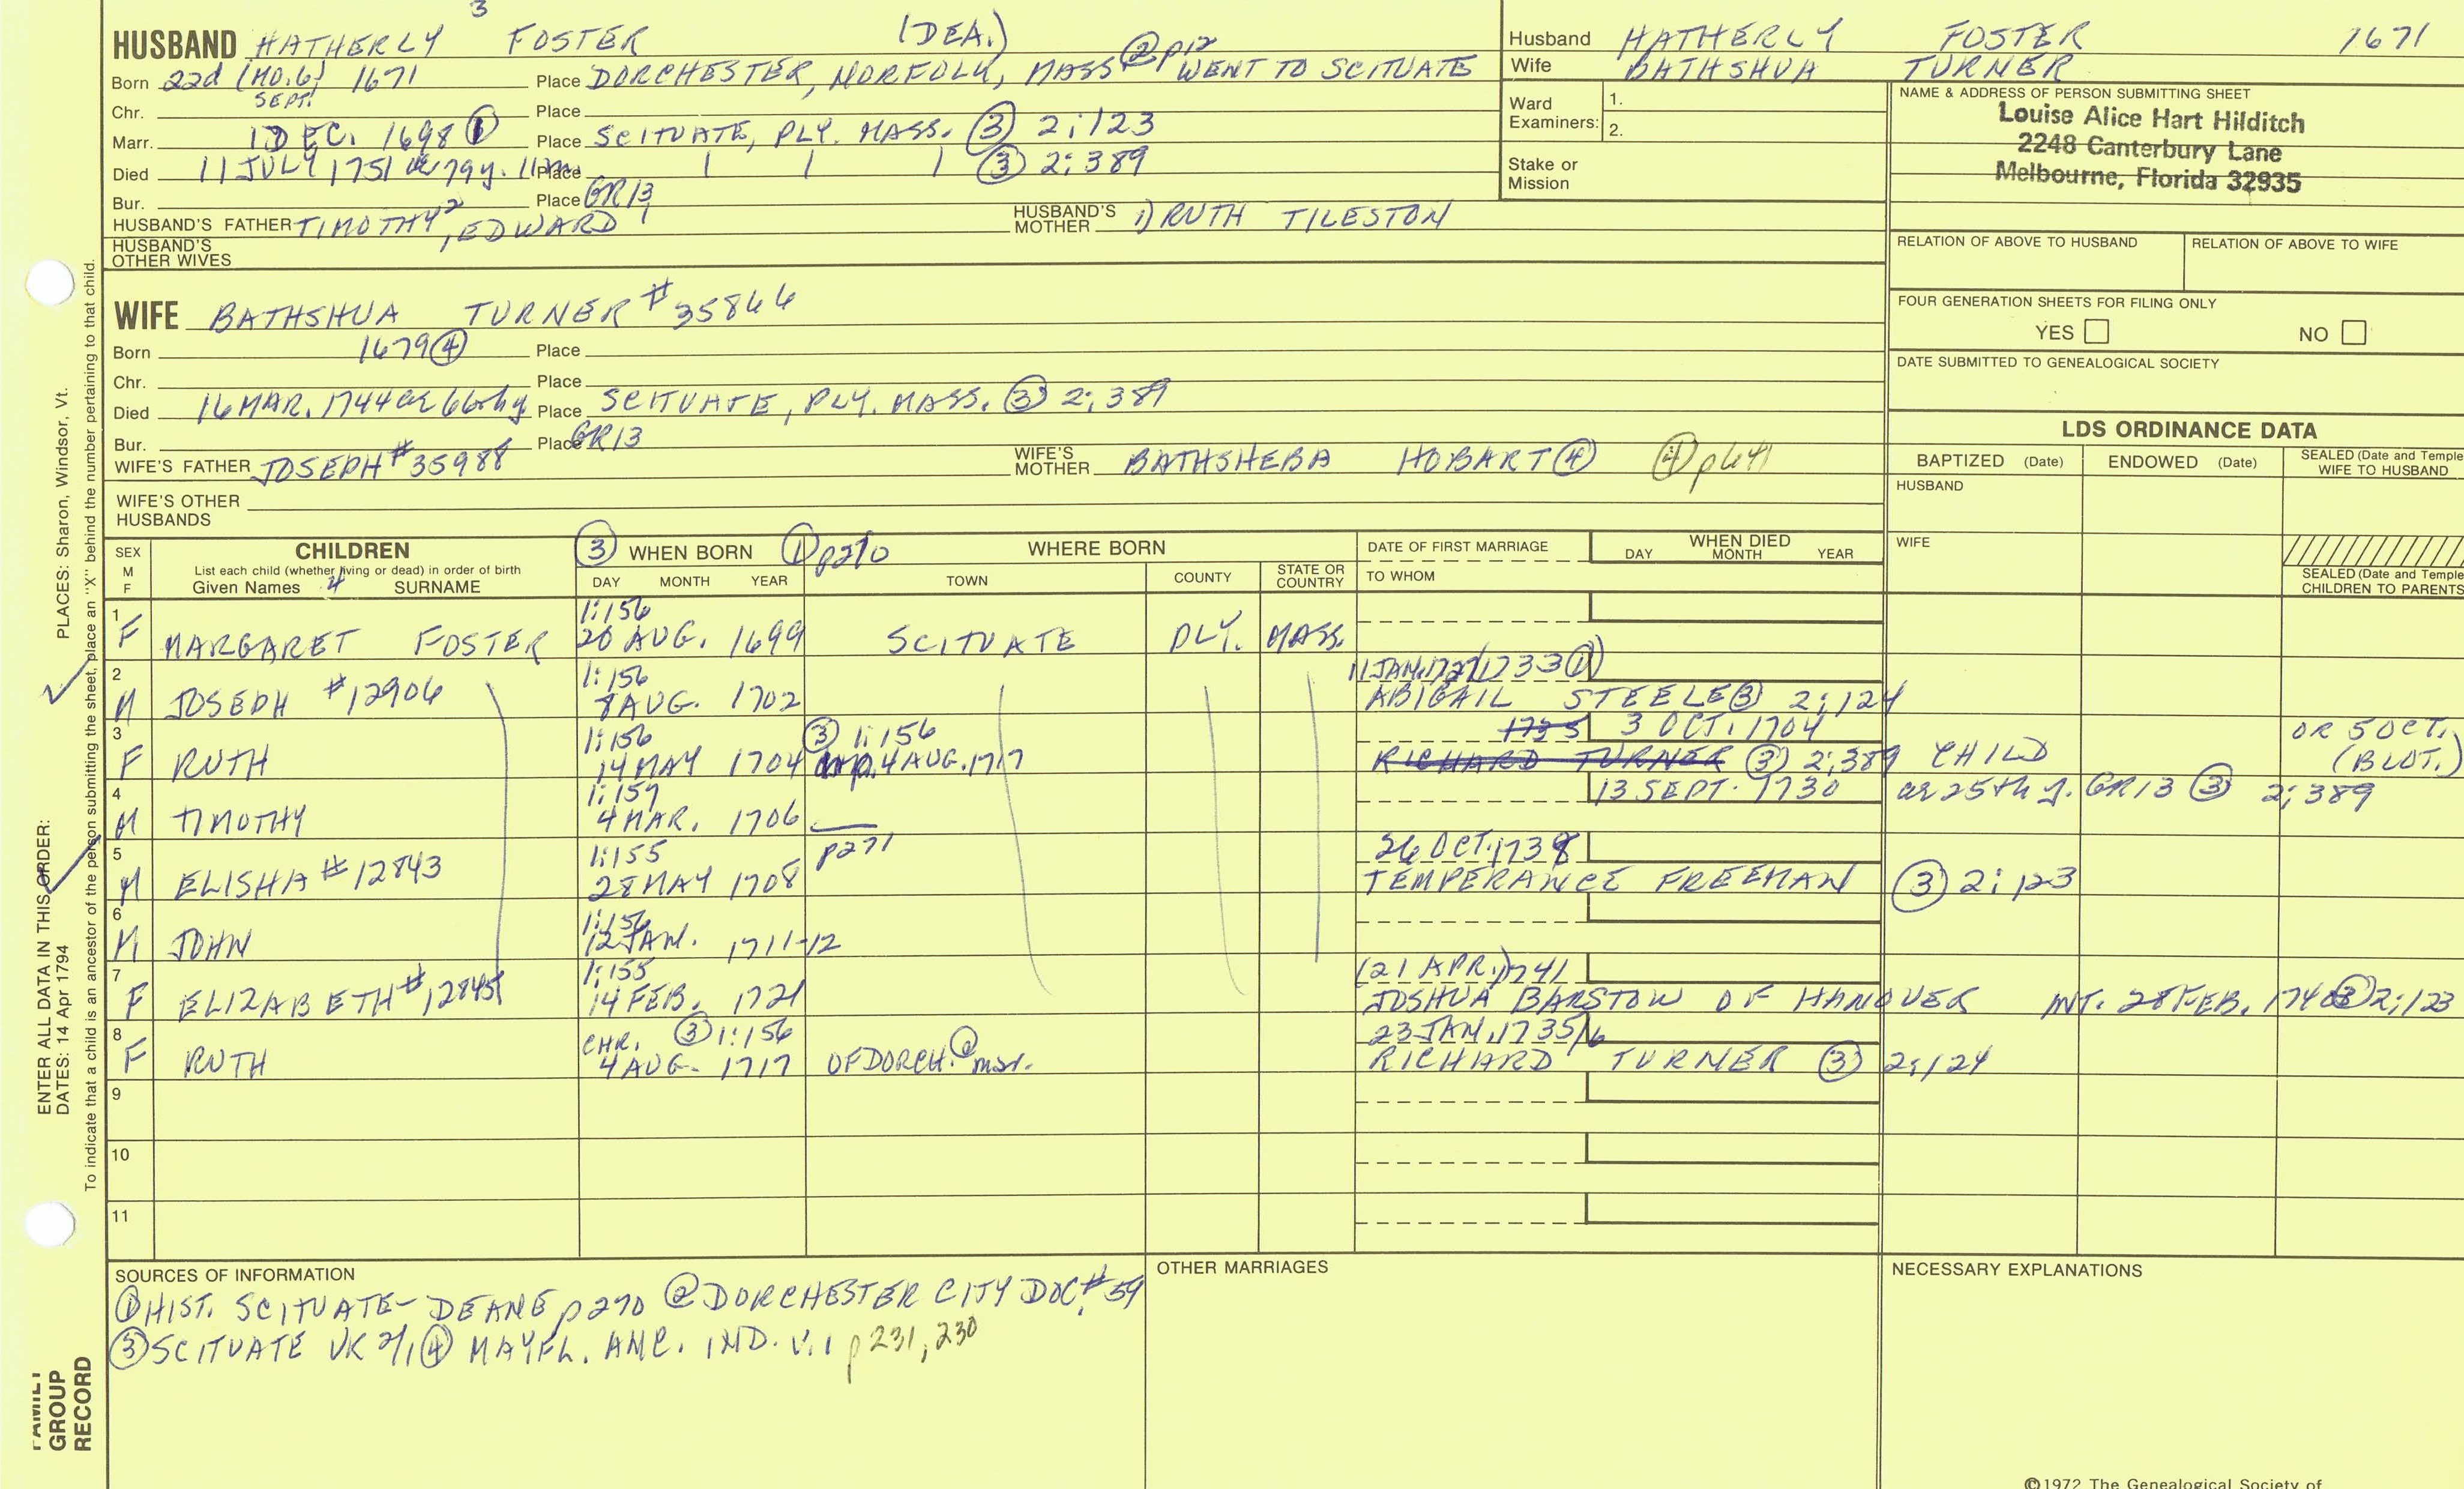 3
HUSBAND HATHERLY FOSTER (DEA.)
Born 22d (MO. 6) 1671 Place DORCHESTER, NORFOLK, MASS ② p12 WENT TO SCITUATE
SEPT.
Chr. Place
Marr. 1 DEC. 1698 ① Place SCITUATE, PLY. MASS. ③ 2:123
Died 11 JULY 1751 ae 79y. 11m Place ③ 2:389
Bur. Place GR13
HUSBAND'S FATHER TIMOTHY 2, EDWARD 1 HUSBAND'S MOTHER 1) RUTH TILESTON
HUSBAND'S OTHER WIVES
Husband HATHERLY FOSTER 1671
Wife BATHSHUA TURNER
Ward Examiners: 1.
2.
Stake or Mission
NAME & ADDRESS OF PERSON SUBMITTING SHEET
Louise Alice Hart Hilditch
2248 Canterbury Lane
Melbourne, Florida 32935
RELATION OF ABOVE TO HUSBAND RELATION OF ABOVE TO WIFE
FOUR GENERATION SHEETS FOR FILING ONLY
YES NO
DATE SUBMITTED TO GENEALOGICAL SOCIETY
WIFE BATHSHUA TURNER #35866
Born 1679 ④ Place
Chr. Place
Died 16 MAR. 1744 ae 66th y Place SCITUATE, PLY. MASS. ③ 2:389
Bur. Place GR13
WIFE'S FATHER JOSEPH #35988 WIFE'S MOTHER BATHSHEBA HOBART ④ ④ p641
WIFE'S OTHER HUSBANDS
LDS ORDINANCE DATA
BAPTIZED (Date) ENDOWED (Date) SEALED (Date and Temple) WIFE TO HUSBAND
HUSBAND
WIFE
SEALED (Date and Temple) CHILDREN TO PARENTS
SEX M F CHILDREN ③ WHEN BORN ① p270 WHERE BORN DATE OF FIRST MARRIAGE WHEN DIED
List each child (whether living or dead) in order of birth
Given Names 4 SURNAME DAY MONTH YEAR TOWN COUNTY STATE OR COUNTRY TO WHOM DAY MONTH YEAR
1:156
1 F MARGARET FOSTER 20 AUG. 1699 SCITUATE PLY. MASS.
1:156 11 JAN. 1727/1733 ①
2 M JOSEPH #12906 8 AUG. 1702 ABIGAIL STEELE ③ 2:124
1:156 ③ 1:156 1735 3 OCT. 1704 OR 5 OCT.
3 F RUTH 14 MAY 1704 4 AUG. 1717 RICHARD TURNER ③ 2:389 CHILD (BLOT.)
1:157 13 SEPT. 1730 ae 25th y. GR13 ③ 2:389
4 M TIMOTHY 4 MAR. 1706
1:155 p271 26 OCT. 1738
5 M ELISHA #12843 28 MAY 1708 TEMPERANCE FREEMAN ③ 2:123
1:156
6 M JOHN 12 JAN. 1711-12
1:155 (21 APR.) 1741
7 F ELIZABETH #12845 14 FEB. 1721 JOSHUA BARSTOW OF HANOVER INT. 28 FEB. 1740 ③ 2:123
CHR. ③ 1:156 23 JAN. 1735/6
8 F RUTH 4 AUG. 1717 OF DORCH. ② RICHARD TURNER ③ 2:124
9
10
11
SOURCES OF INFORMATION
① HIST. SCITUATE - DEANE p270 ② DORCHESTER CITY DOC. #59
③ SCITUATE VR ④ MAYFL. ANC. IND. V. 1 p 231, 230
OTHER MARRIAGES
NECESSARY EXPLANATIONS
©1972 The Genealogical Society of
PLACES: Sharon, Windsor, Vt.
ENTER ALL DATA IN THIS ORDER:
DATES: 14 Apr 1794
To indicate that a child is an ancestor of the person submitting the sheet, place an "X" behind the number pertaining to that child.
FAMILY GROUP RECORD